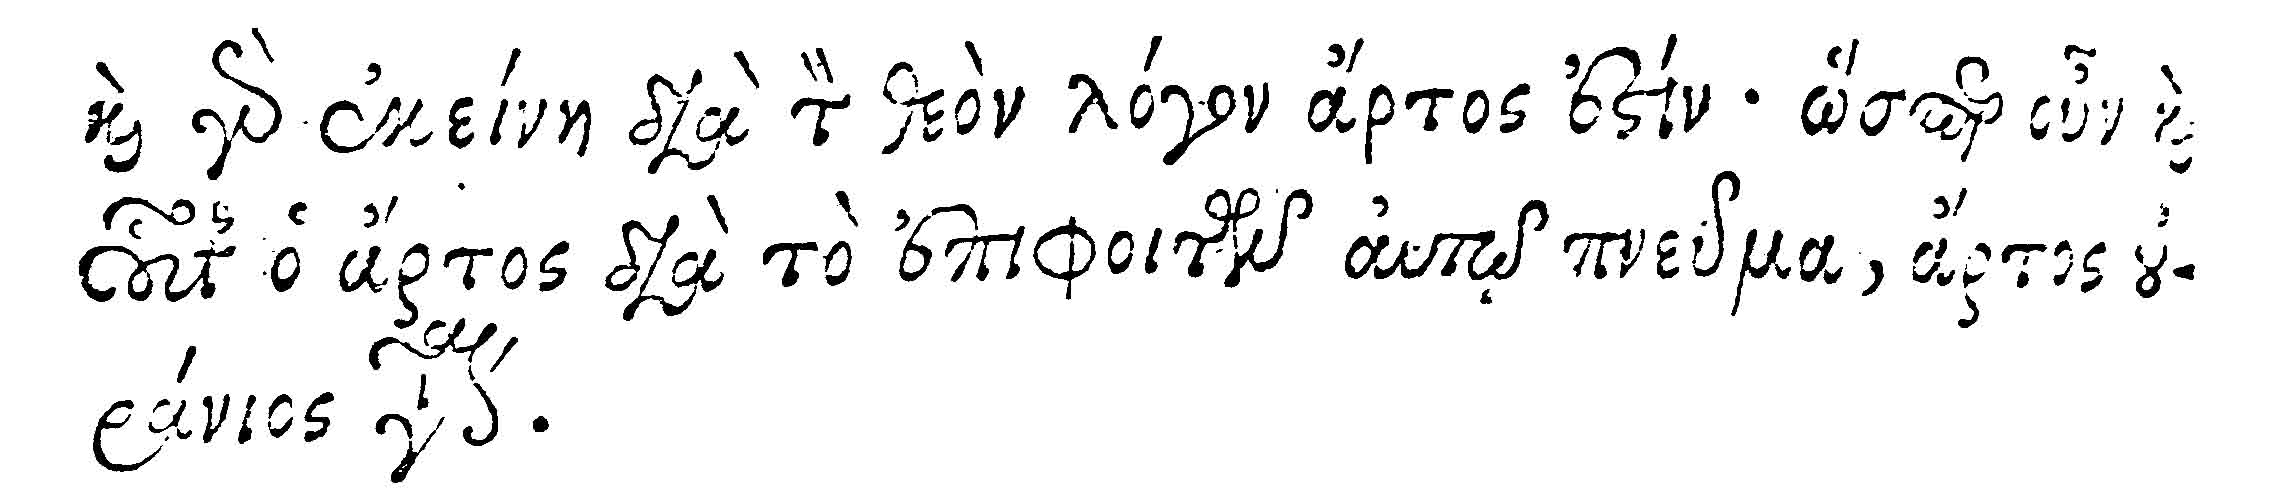 καὶ γὰρ ἐκείνη διὰ τὸν θεὸν λόγον ἄρτος ἐστίν· ὥσπερ οὖν καὶ
οὗτος ὁ ἄρτος διὰ τὸ ἐπιφοιτῶν αὐτῷ πνεῦμα, ἄρτος οὐ-
ράνιος γίνεται.